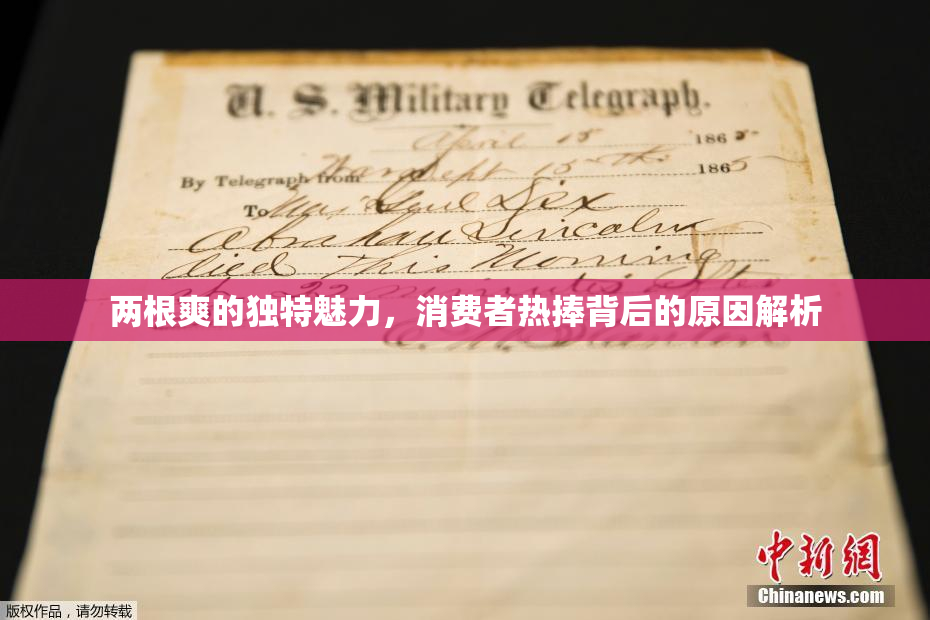 U. S. Military Telegraph.
April 15 1865
By Telegraph from War Dept 15th 1865
To Maj Genl Dix
Abraham Lincoln
died This Morning
at 22 minutes after
两根爽的独特魅力，消费者热捧背后的原因解析
中新网
Chinanews.com
版权作品，请勿转载